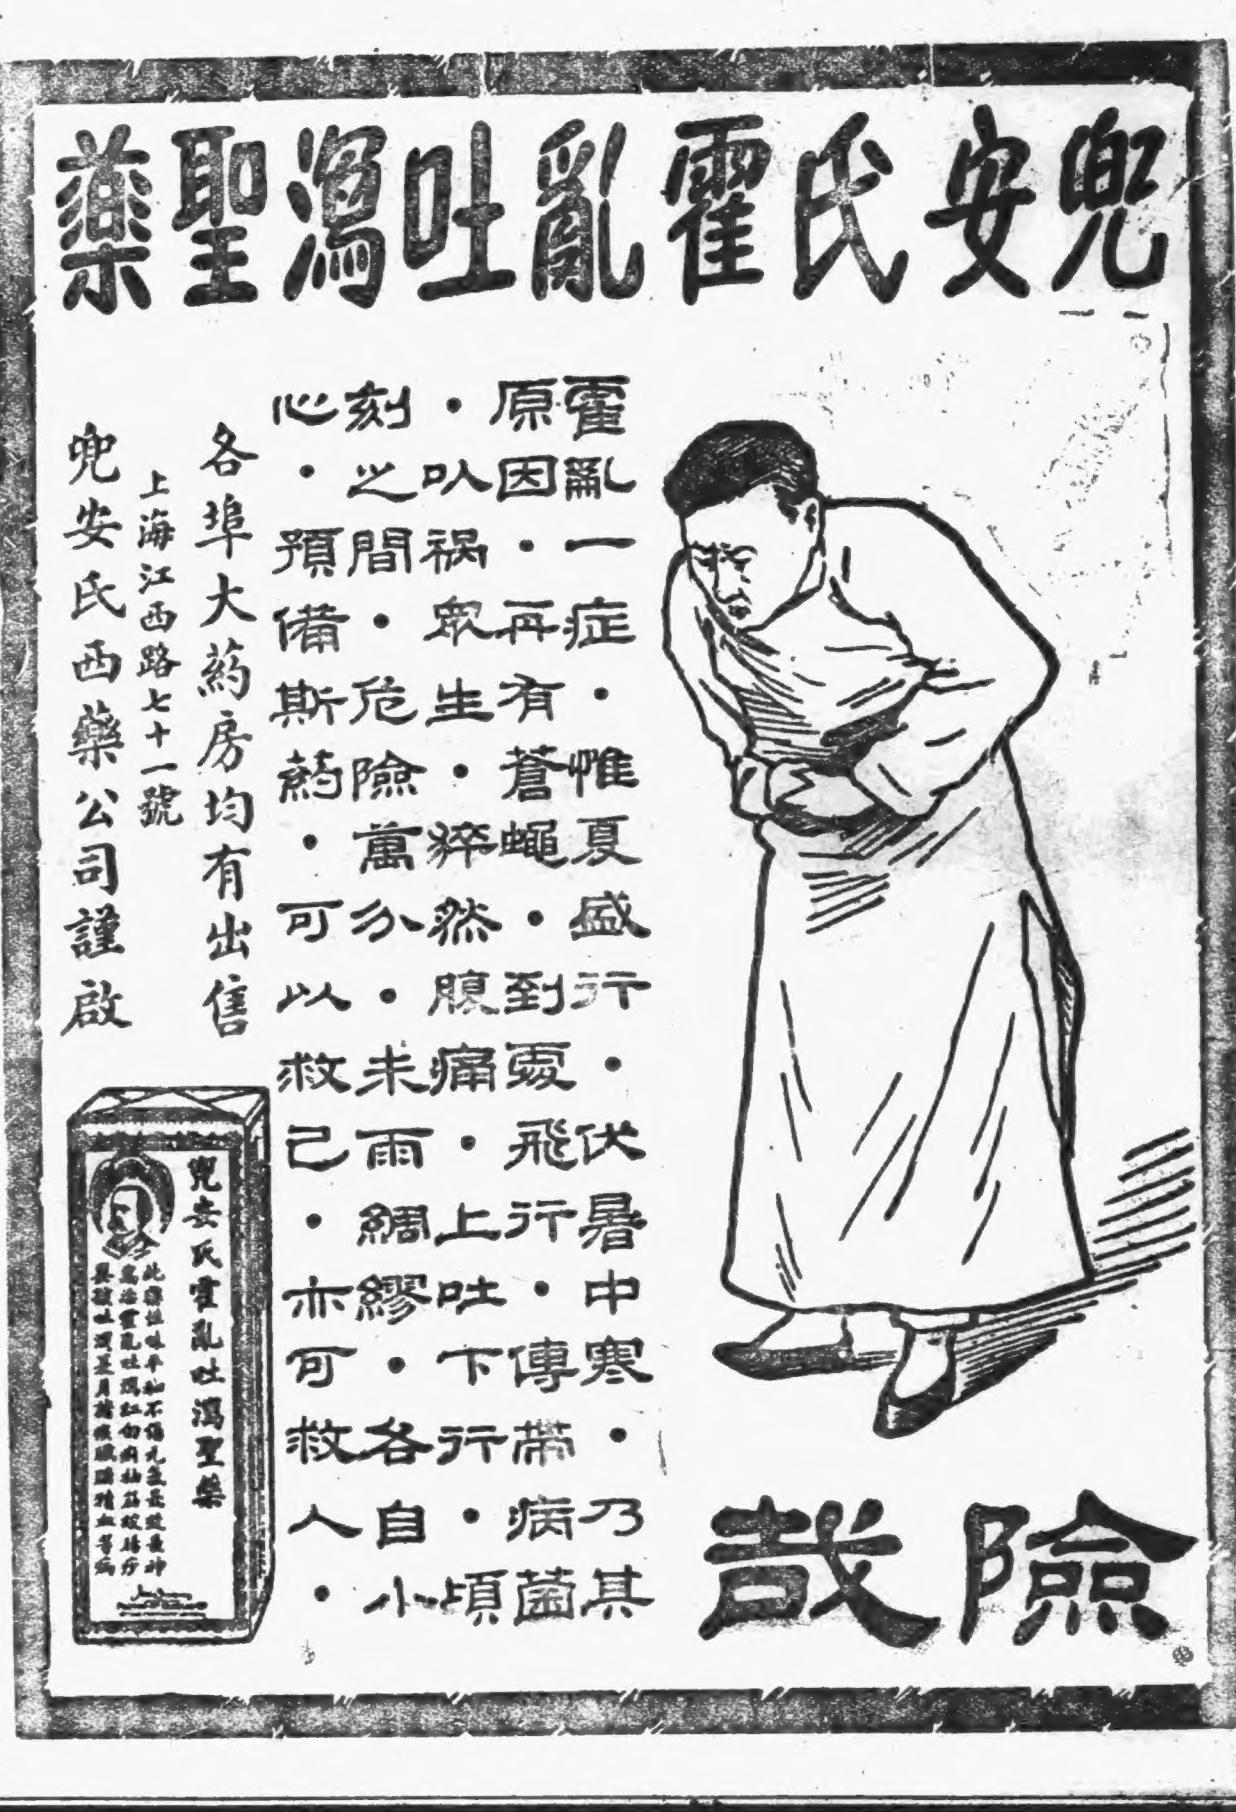 兜安氏霍亂吐瀉聖藥
險哉
霍亂一症・惟夏盛行・伏暑中寒・乃其
原因・再有蒼蠅・到處飛行・傳帶病菌
・以禍眾生・猝然腹痛・上吐下行・頃
刻之間・危險萬分・未雨綢繆・各自小
心・預備斯葯・可以救己・亦可救人・
各埠大葯房均有出售
上海江西路七十一號
兜安氏西藥公司謹啟
兜安氏霍亂吐瀉聖藥